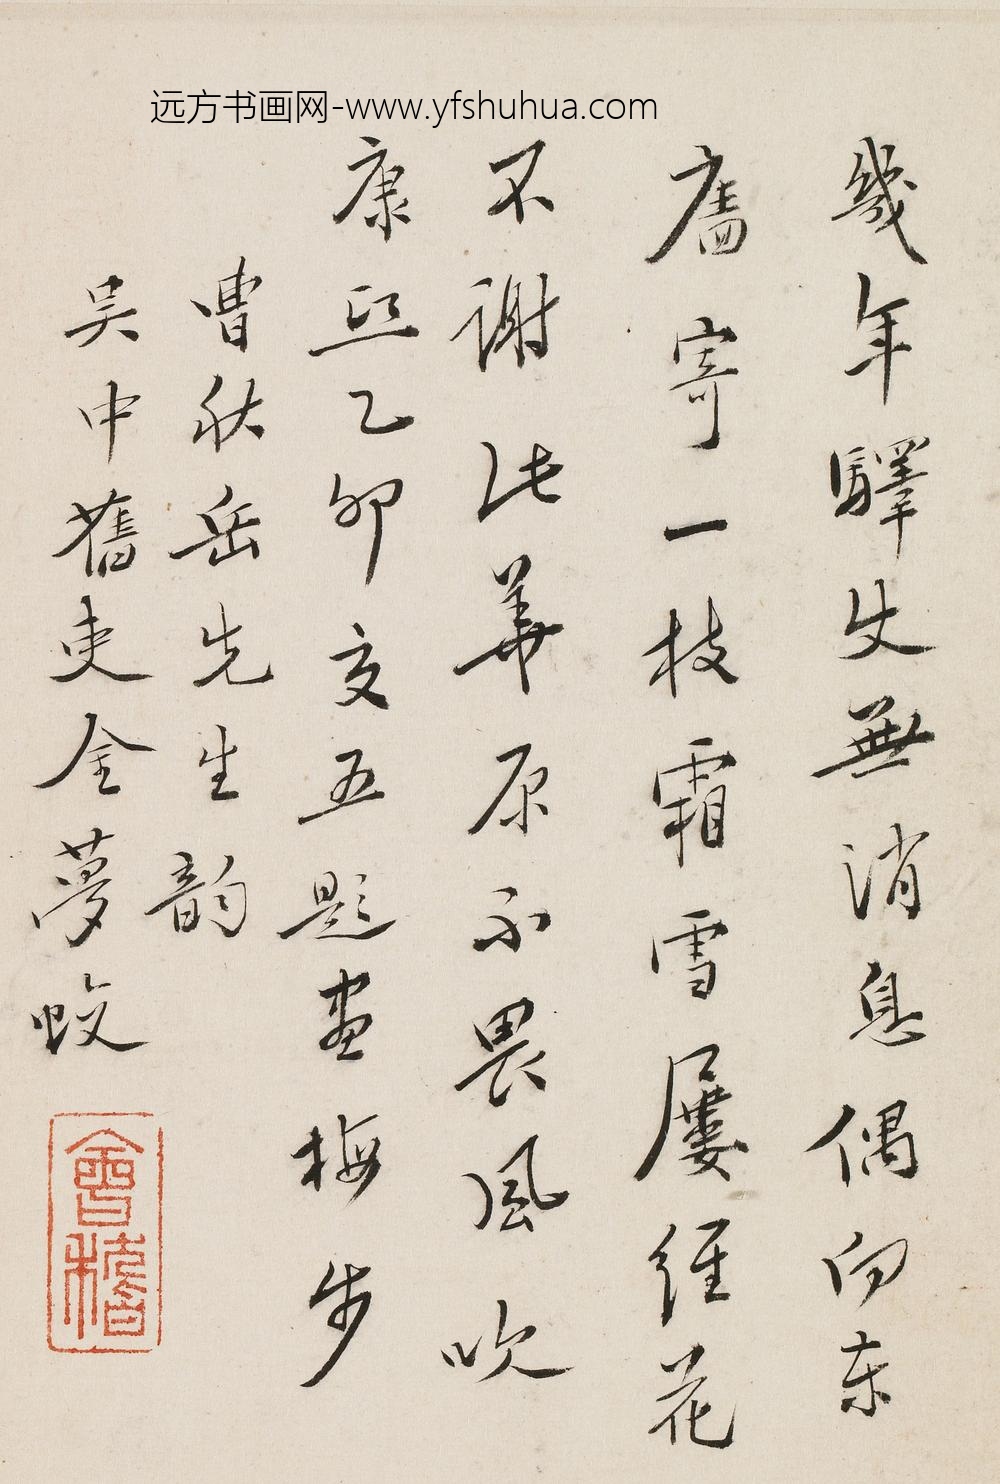 远方书画网-www.yfshuhua.com
幾年驛使無消息偶向東
廧寄一枝霜雪屢經花
不謝此華原不畏風吹
康熙乙卯夏五題畫梅步
曹秋岳先生韵
吳中舊吏金夢蛟
會稽